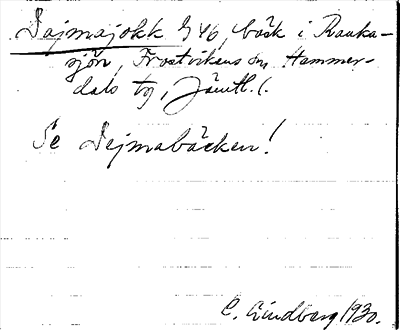 Dajmajokk § 46, bäck i Rauka-
sjön, Frostvikens sn, Hammer-
dals tg, Jämtl. l.
Se Dejmabäcken!
C. Lindberg 1930.